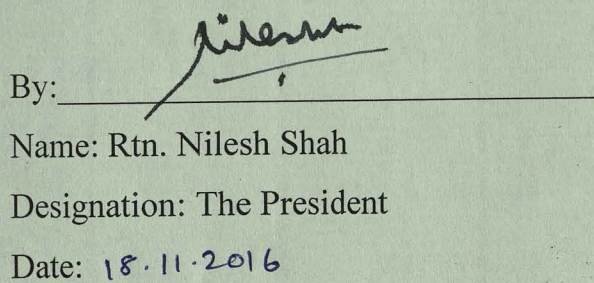 Nilesh
By:
Name: Rtn. Nilesh Shah
Designation: The President
Date: 18.11.2016